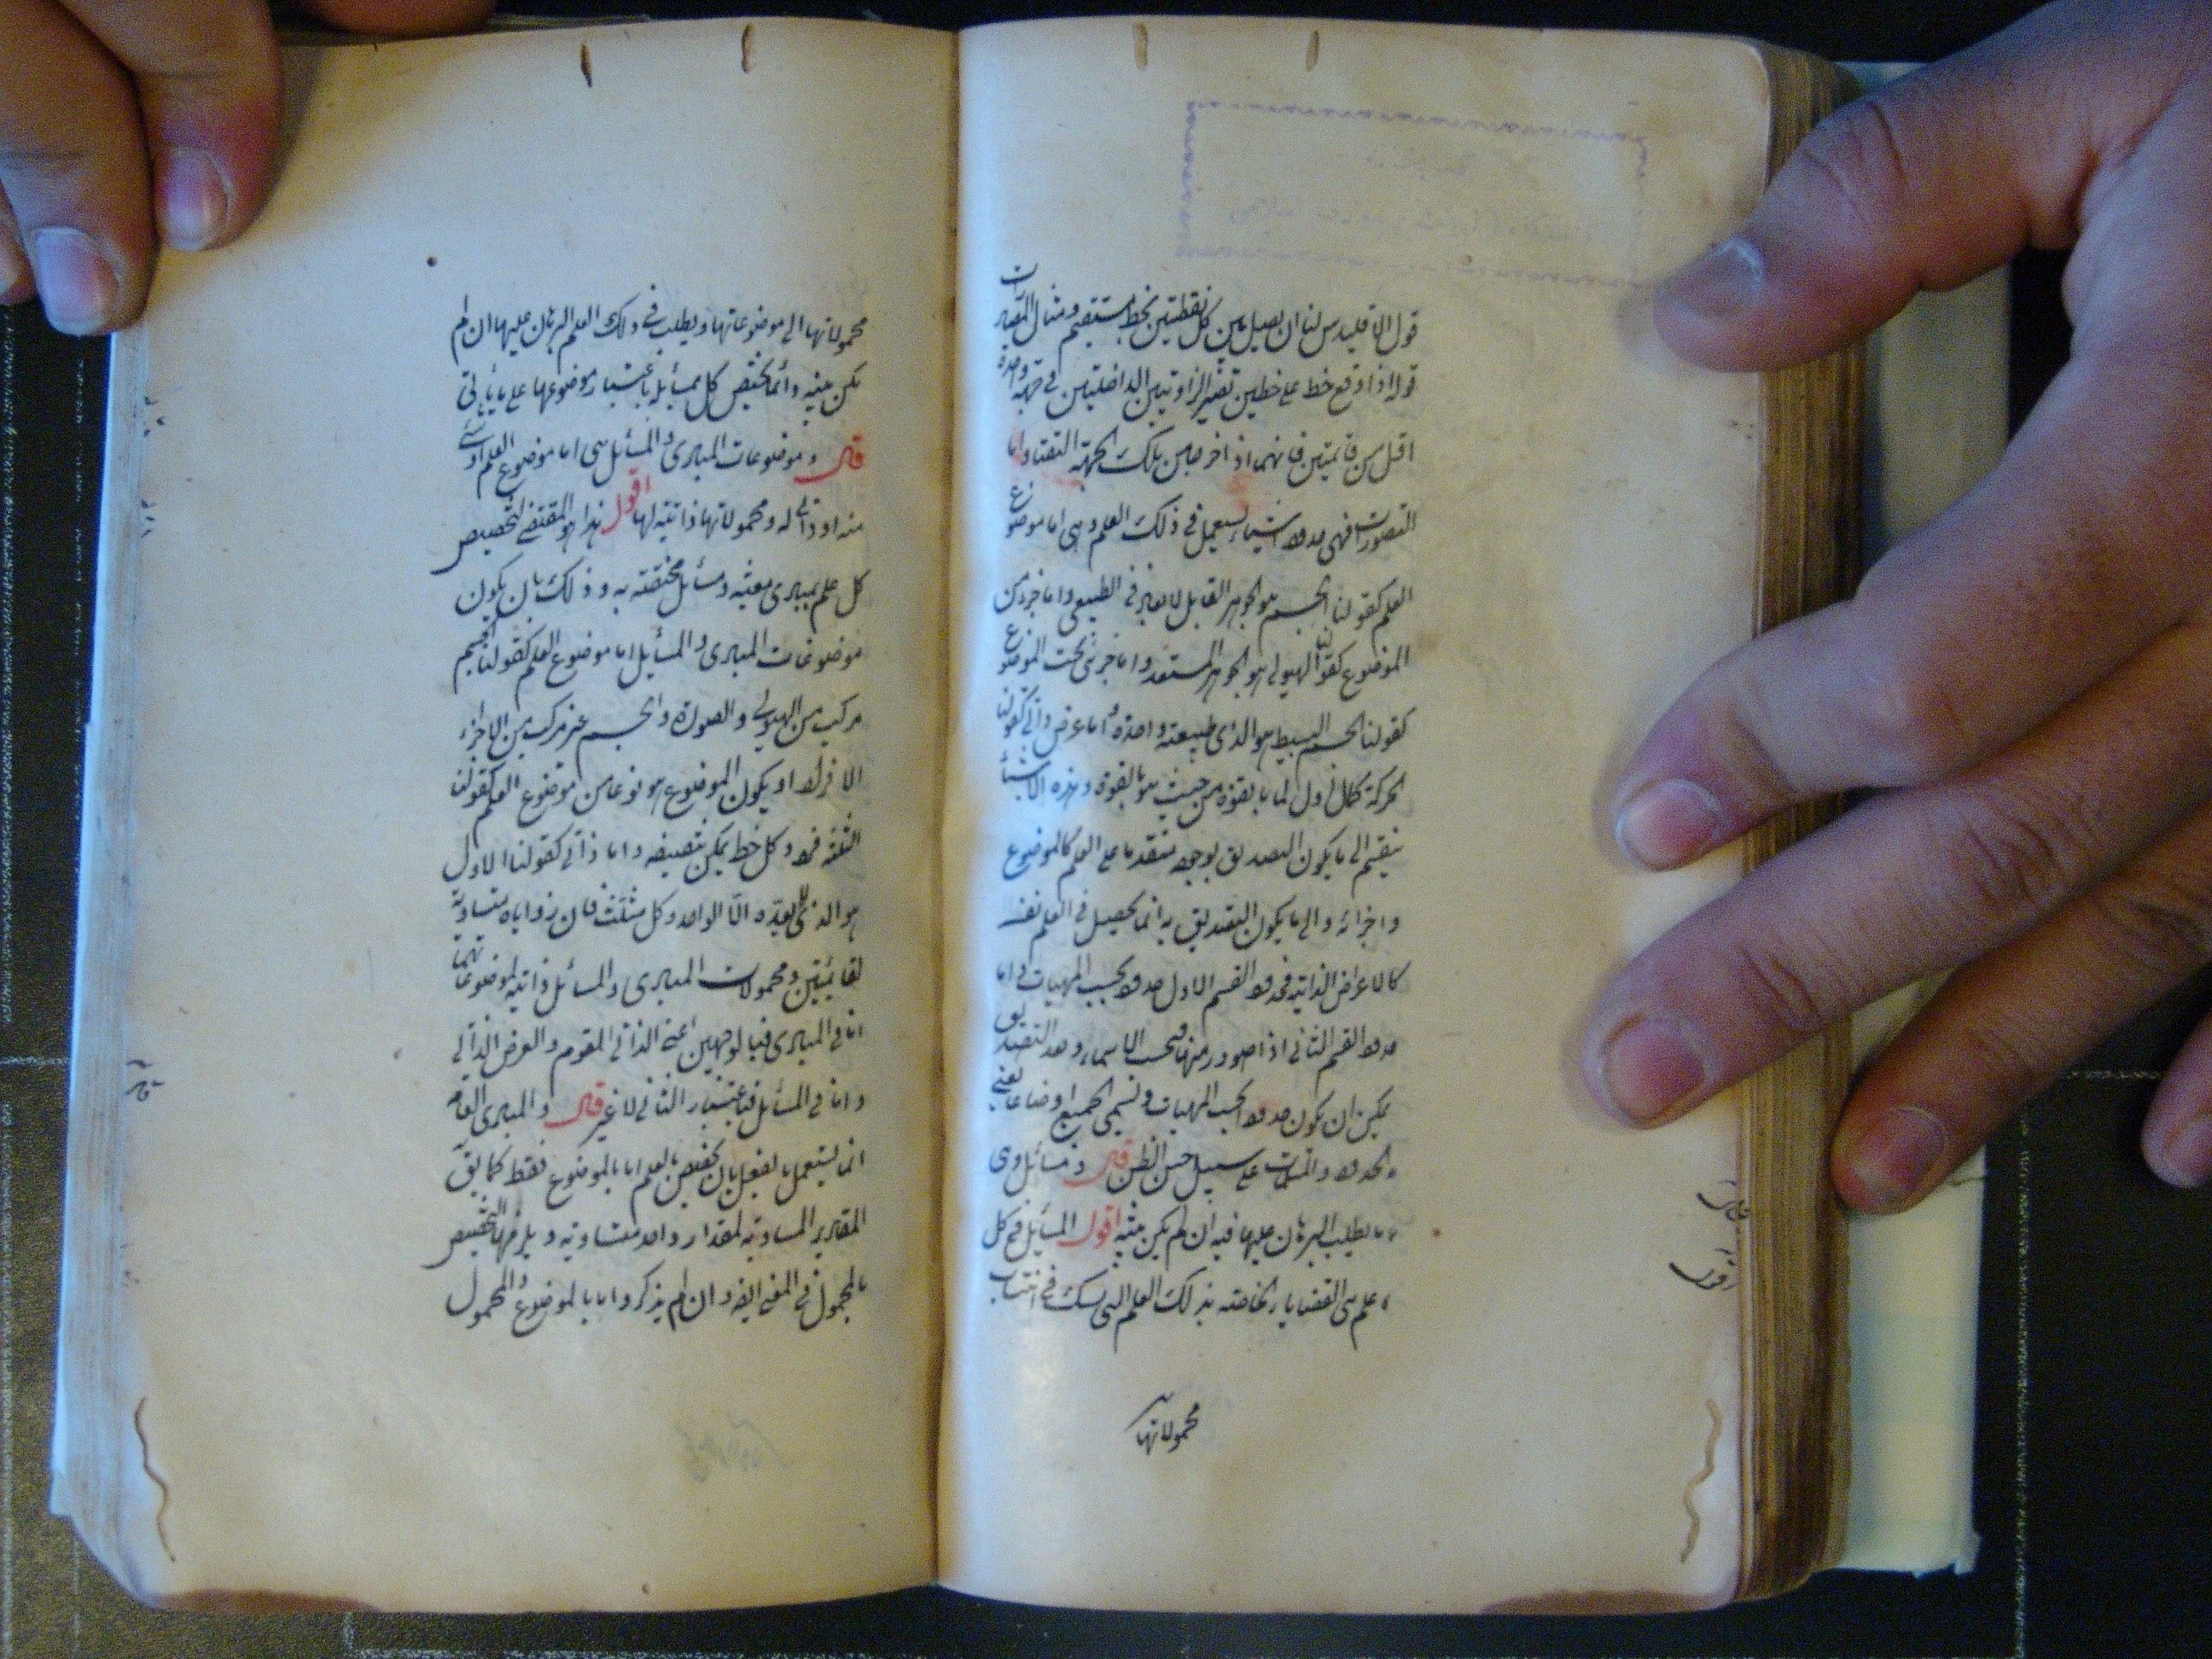 قول اقليدس لنا ان نصل بين كل نقطتين بخط مستقيم ومثال المصادرات
قوله اذا وقع خط على خطين تصير الزاويتين الداخلتين فى جهة واحدة
اقل من قائمتين فانهما اذا اخرجا من تلك الجهة التقتا واما
التصورات فهى حدود اشياء يستعمل فى ذلك العلم وهى اما موضوع
العلم كقولنا الجسم هو الجوهر القابل للابعاد فى الطبيعى واما جزء من
الموضوع كقولنا الهيولى هو الجوهر المستعد واما جزئى تحت الموضوع
كقولنا الجسم البسيط هو الذى طبيعته واحدة واما عرض ذاتى كقولنا
الحركة كمال اول لما بالقوة من حيث هو بالقوة وهذه الاشياء
ينقسم الى ما يكون التصديق بوجوده متقدما على العلم كالموضوع
واجزائه والى ما يكون التصديق به انما يحصل فى العلم نفسه
كالاعراض الذاتية فحدود القسم الاول حدود بحسب المهيات واما
حدود القسم الثانى اذا صودر منها بحسب الاسماء وبعد التصديق
يمكن ان يكون حدودا بحسب المهيات وتسمى الجميع اوضاعا يعنى
الحدود والمسلمات على سبيل حسن الظن قال ومسائل وهى
ما يطلب البرهان عليها فيه ان لم يكن بينة اقول المسائل فى كل
علم هى القضايا الخاصة بذلك العلم التى يشك فى انتساب
محمولاتها
اقول
محمولاتها الى موضوعاتها ويطلب فى ذلك العلم البرهان عليها ان لم
يكن بينة وانما يختص كل مسائل باعتبار موضوعها على ما يأتى
قال وموضوعات المبادى والمسائل هى اما موضوع العلم او شئ
منه او ذاتى له ومحمولاتها ذاتية لها اقول هذا هو المقتضى لتخصيص
كل علم بمبادى معينة ومسائل مختصة به وذلك بان يكون
موضوعات المبادى والمسائل اما موضوع العلم كقولنا الجسم
مركب من الهيولى والصورة والجسم غير مركب من الاجزاء
الافراد او يكون الموضوع هو نوعا من موضوع العلم كقولنا
الثلثة فرد وكل خط يمكن تنصيفه واما ذاتى كقولنا الاول
هو الذى لا يعده الا الواحد وكل مثلث فان زواياه مساوية
لقائمتين ومحمولات المبادى والمسائل ذاتية لموضوعاتهما
اما فى المبادى فبالوجهين اعنى الذاتى المقوم والعرض الذاتى
واما فى المسائل فباعتبار الثانى لا غير قال والمبادى العامة
انما يستعمل بالفعل بان يخصص بالعلم اما بالموضوع فقط كما يق
المقادير المساوية لمقدار واحد متساوية ويلزمها التخصيص
بالمحمول فى المعنى ايضا وان لم يذكر واما بالموضوع والمحمول